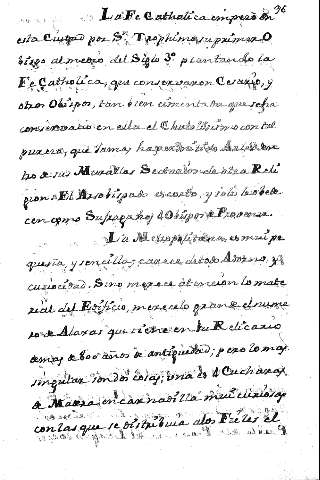 96
La Fe Catholica empezó en
esta Ciudad por Sn. Trophimo, su primer O
bispo al medio del Siglo 3º plantando la
Fe Catholica, que conservaron Cesario, y
otros Obispos, tan bien cimentada que se ha
conservado en ella el con tal
pureza, que jamas ha permitido
tro de sus Murallas de otra Reli
gion: El Arzobispado es corto, y solo le obede
cen como Sufraganeos 4 Obispos de
La Metropolitana, es mui pe
queña, y sencilla; carece de todo Adorno, y
curiocidad. Si no merece atencion lo mate
rial del Edificio, merecelo grande el nume
ro de Alaxas que tiene en su Relicario
de mas de 600 años de antiguedad; pero lo mas
singular son dos cosas; una es 4 Cucharas
de Madera encarnadilla mui curiosas
con las que se distribuia a los Fieles el